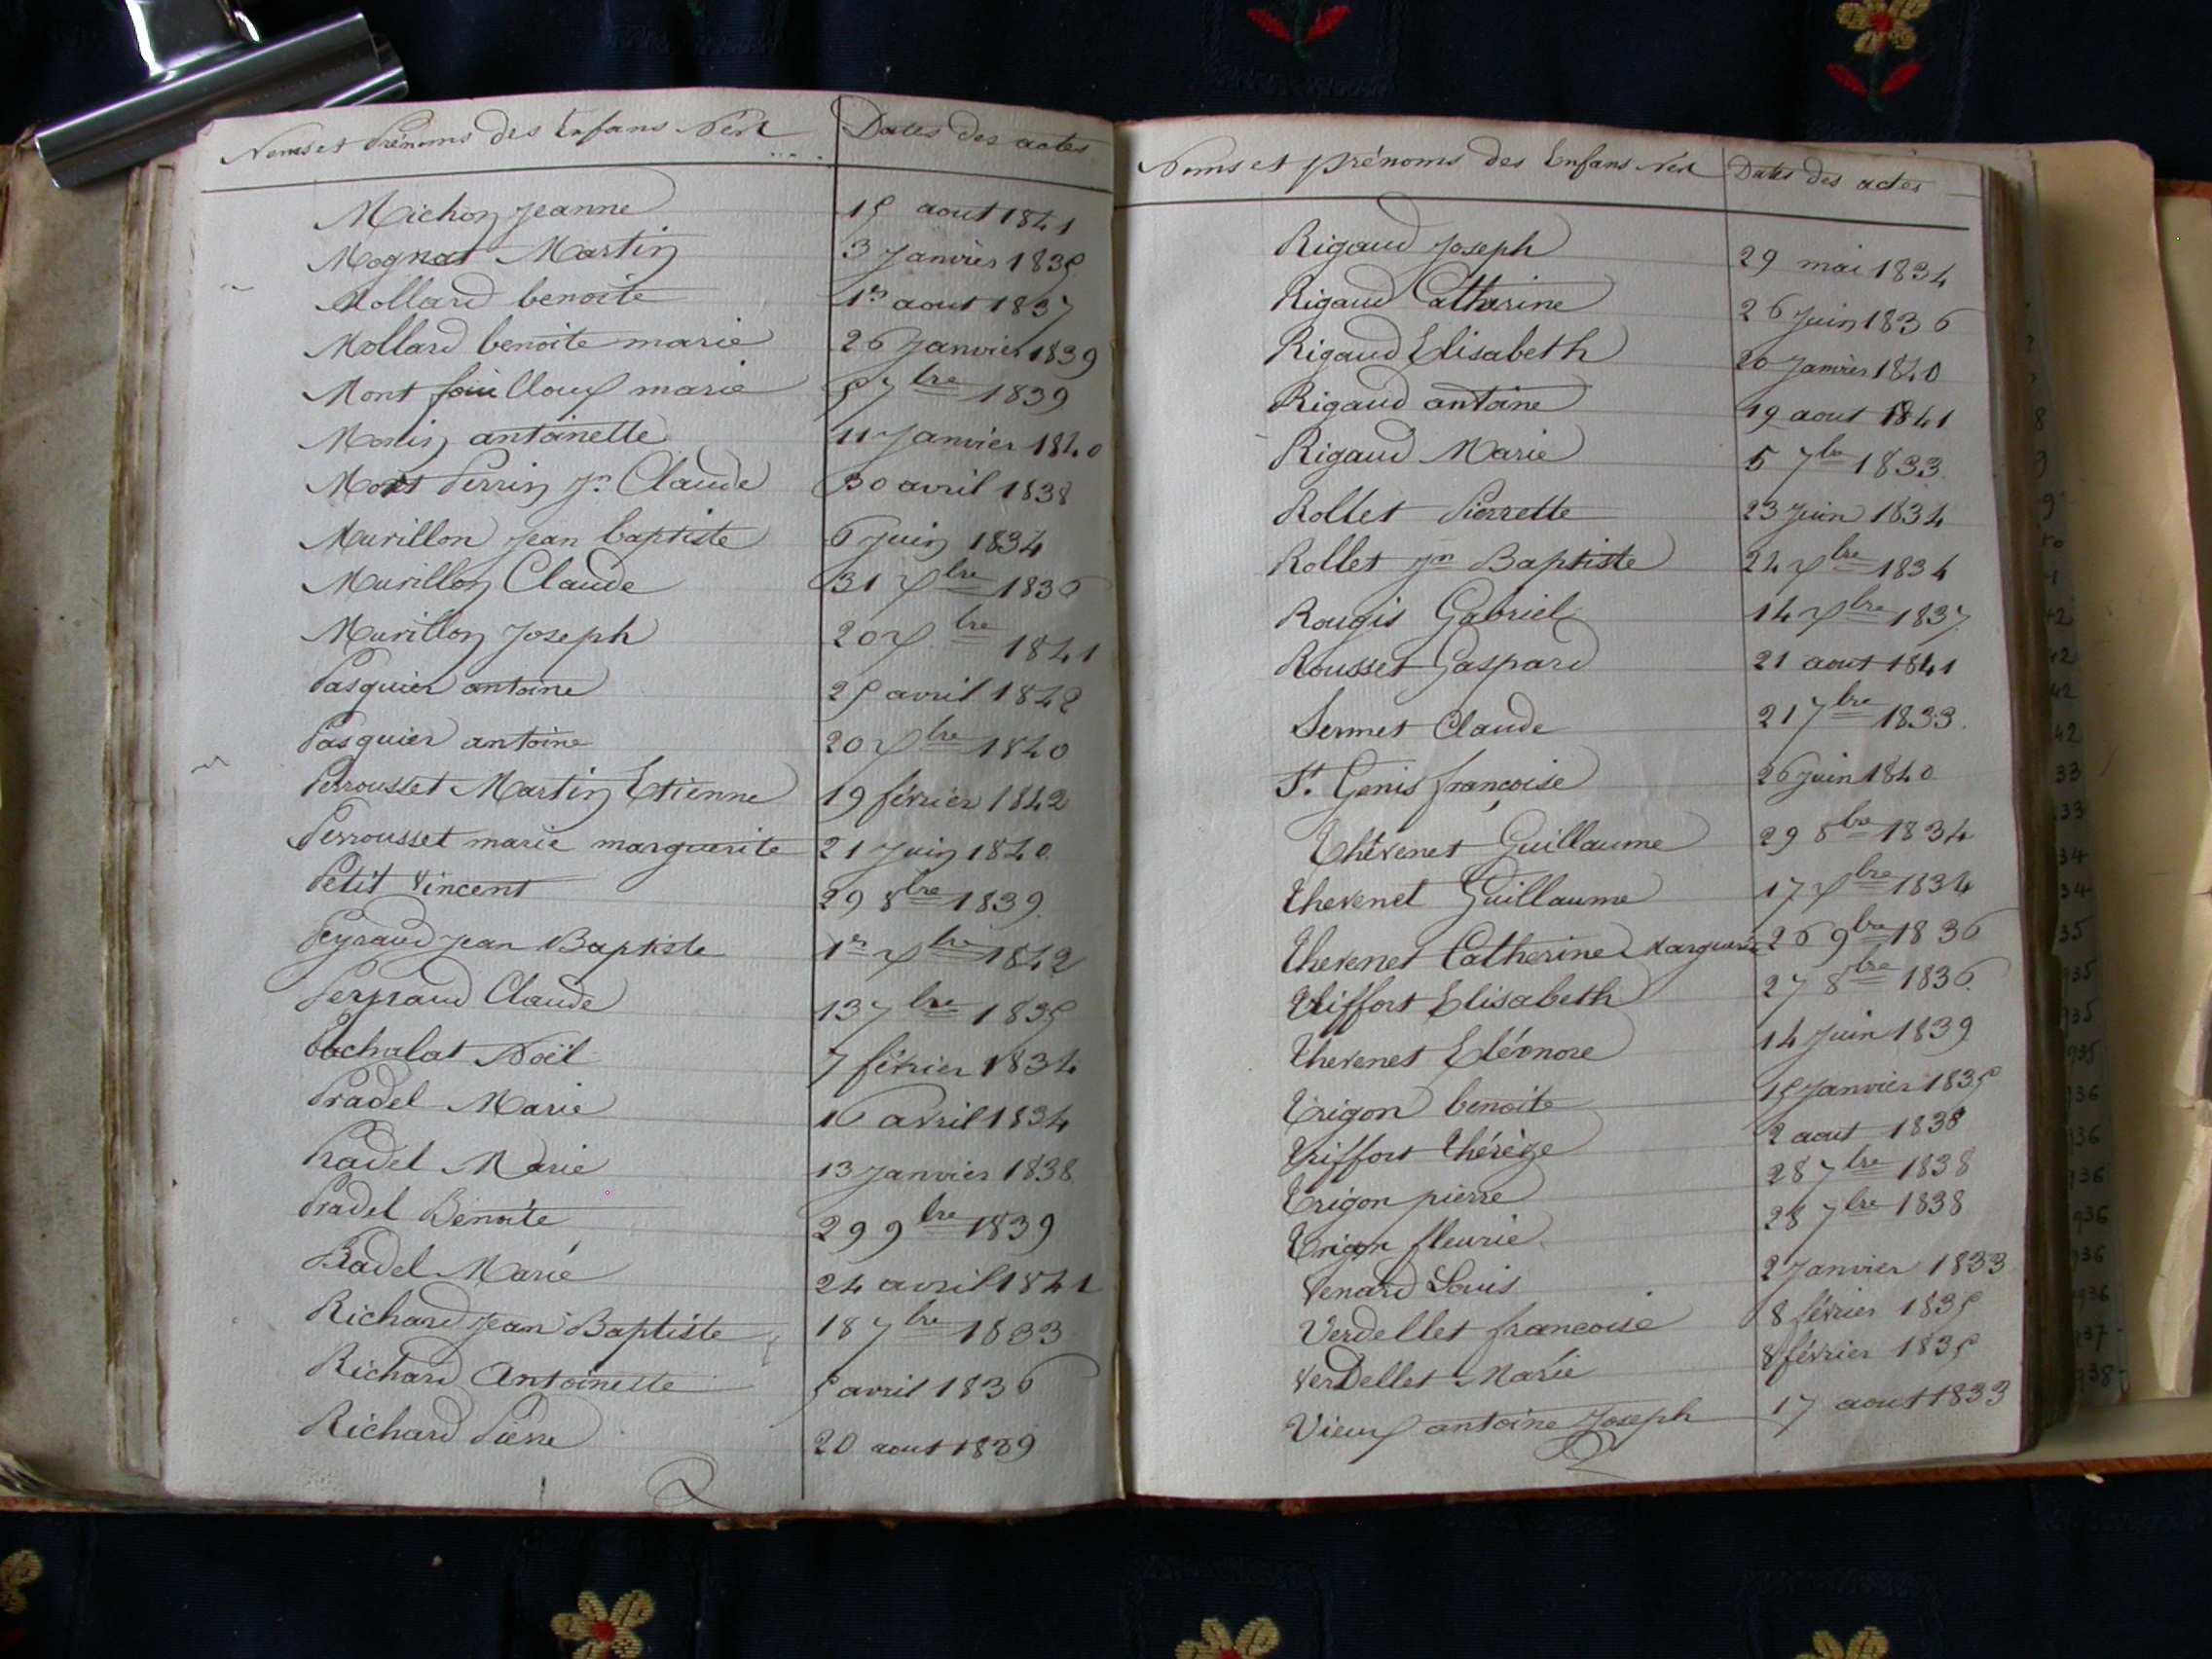 Noms et Prénoms des Enfans Nés
Dates des actes
Michon Jeanne 15 aout 1841
Mognat Martin 3 Janvier 1835
Mollard benoite 1er aout 1837
Mollard benoite marie 26 Janvier 1839
Mont fouilloux marie 5 7bre 1839
Monin antoinette 11 Janvier 1840
Mont Perrin Jn Claude 30 avril 1838
Murillon Jean baptiste 6 Juin 1834
Murillon Claude 31 Xbre 1836
Murillon Joseph 20 Xbre 1841
Pasquier antoine 25 avril 1842
Pasquier antoine 20 Xbre 1840
Perrousset Martin Etienne 19 février 1842
Perrousset marie marguerite 21 Juin 1840
Petit Vincent 29 8bre 1839
Peyraud Jean Baptiste 1er Xbre 1842
Claude 13 7bre 1835
Pochalat Noël 7 février 1834
Pradel Marie 16 avril 1834
Pradel Marie 13 Janvier 1838
Pradel Benoite 29 9bre 1839
Pradel Marie 24 avril 1841
Richard Jean Baptiste 18 7bre 1833
Richard Antoinette 5 avril 1836
Richard Pierre 20 aout 1839
Noms et prénoms des Enfans Nés
Dates des actes
Rigaud Joseph 29 mai 1834
Rigaud Catherine 26 Juin 1836
Rigaud Elisabeth 20 Janvier 1840
Rigaud antoine 19 aout 1841
Rigaud Marie 5 7bre 1833
Rollet Pierrette 23 Juin 1834
Rollet Jn Baptiste 24 Xbre 1834
Rougis Gabriel 14 Xbre 1837
Rousset Gaspard 21 aout 1841
Sermet Claude 21 7bre 1833
St. Genis françoise 26 Juin 1840
Thévenet Guillaume 29 8bre 1834
Thevenet Guillaume 17 Xbre 1834
Thevenet Catherine Marguerite 26 9bre 1836
Triffort Elisabeth 27 8bre 1836
Thevenet Eléonore 14 Juin 1839
Trigon benoite 15 Janvier 1835
Triffort thérèze 2 aout 1838
Trigon pierre 28 7bre 1838
Trigon fleurie 28 7bre 1838
Venard Louis 2 Janvier 1833
Verdellet francoise 8 février 1835
Verdellet Marie 8 février 1835
Vieux antoine Joseph 17 aout 1833